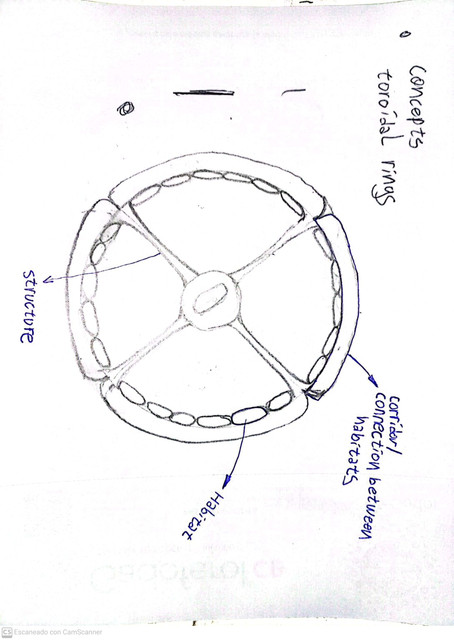 concepts
toroidal rings
structure
corridor/
connection between
habitats
Habitat
CS Escaneado con CamScanner